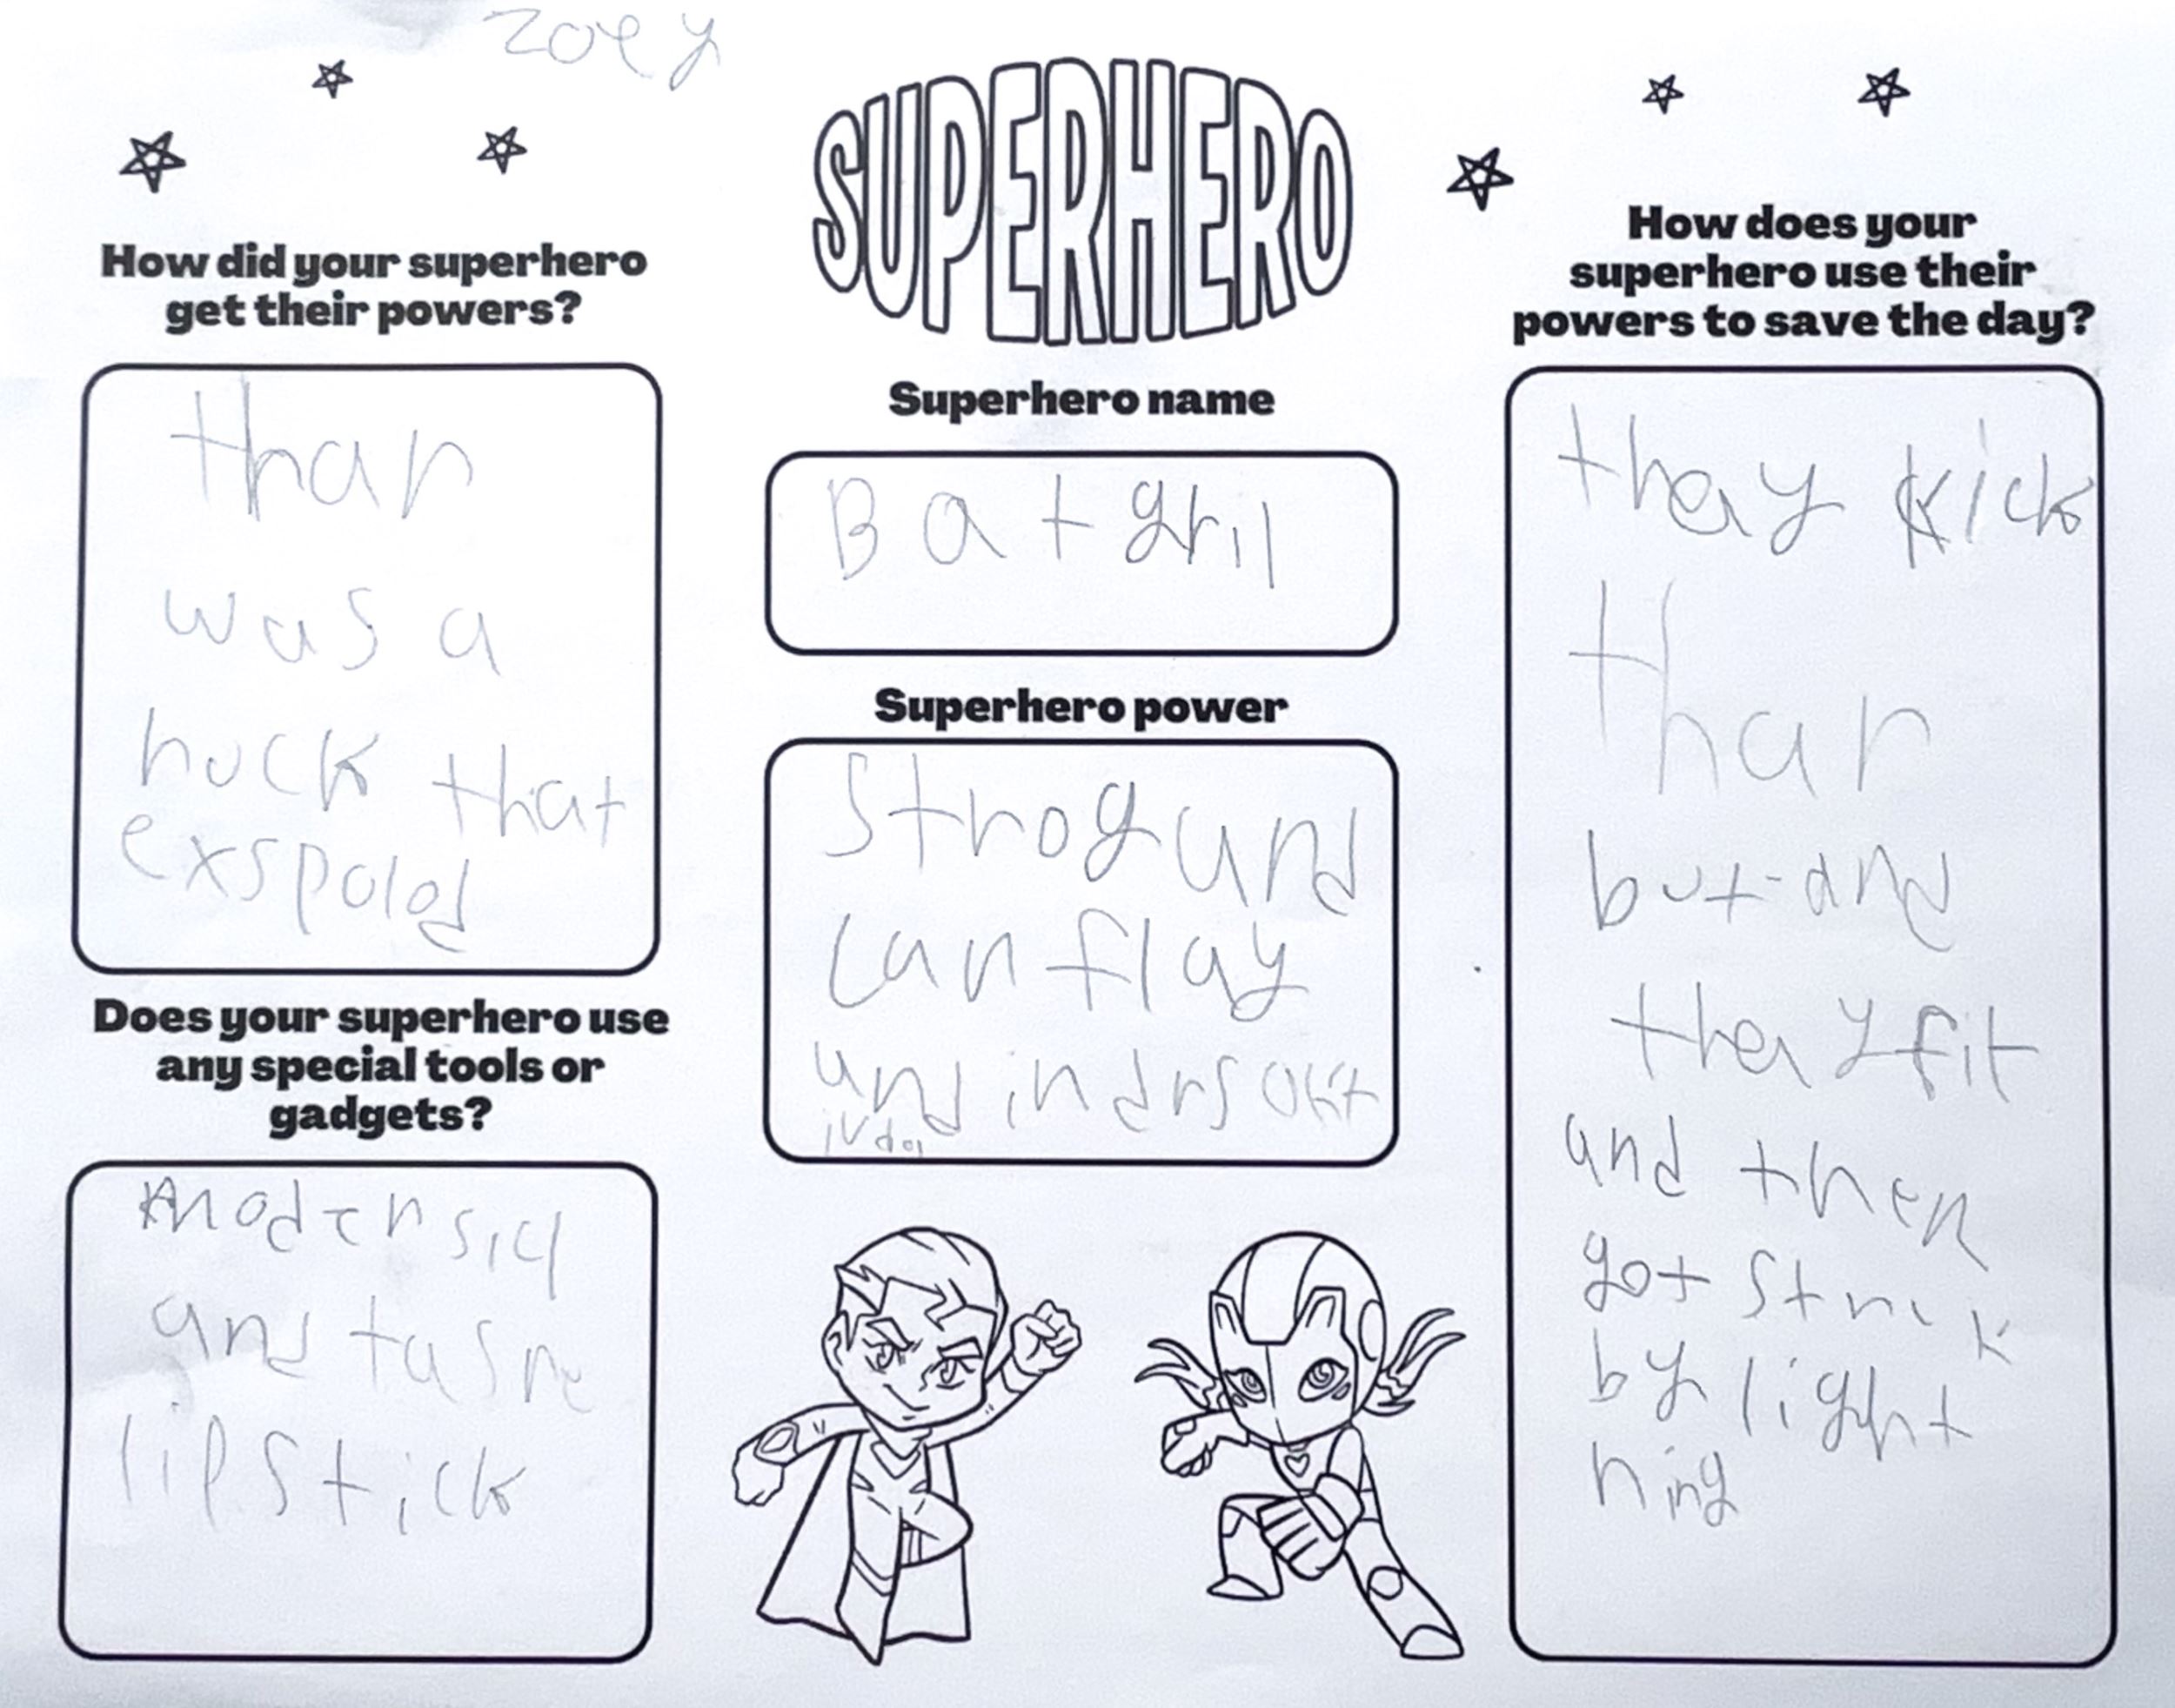 Zoey
SUPERHERO
How did your superhero
get their powers?
thar
was a
rock that
exspolod
Does your superhero use
any special tools or
gadgets?
modersicl
and tasre
lipstick
Superhero name
Batgril
Superhero power
Strog and
can flay
and indrsoktt
ivdol
How does your
superhero use their
powers to save the day?
thay kick
thar
but and
thay fit
and then
got struk
by light
ning